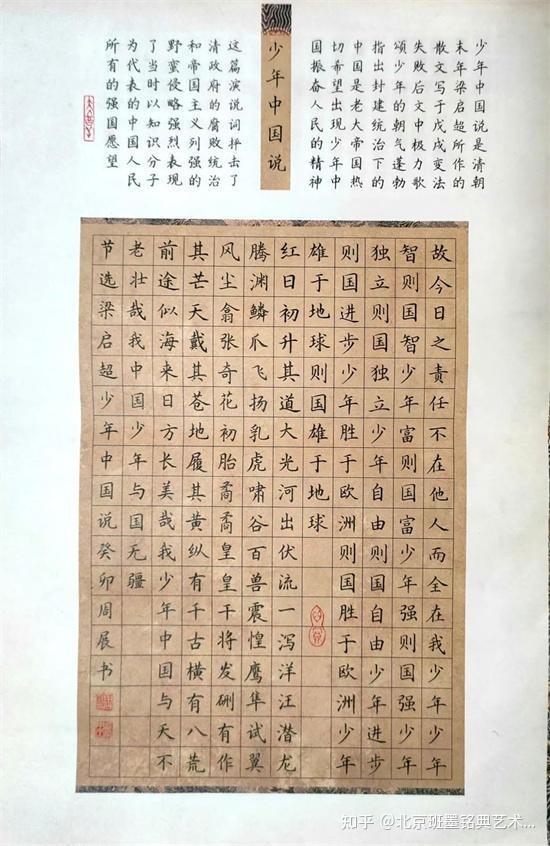 少年中国说是清朝
末年梁启超所作的
散文写于戊戌变法
失败后文中极力歌
颂少年的朝气蓬勃
指出封建统治下的
中国是老大帝国热
切希望出现少年中
国振奋人民的精神
少年中国说
这篇演说词抨击了
清政府的腐败统治
和帝国主义列强的
野蛮侵略强烈表现
了当时以知识分子
为代表的中国人民
所有的强国愿望
故今日之责任不在他人而全在我少年少年
智则国智少年富则国富少年强则国强少年
独立则国独立少年自由则国自由少年进步
则国进步少年胜于欧洲则国胜于欧洲少年
雄于地球则国雄于地球
红日初升其道大光河出伏流一泻洋汪潜龙
腾渊鳞爪飞扬乳虎啸谷百兽震惶鹰隼试翼
风尘翕张奇花初胎矞矞皇皇干将发硎有作
其芒天戴其苍地履其黄纵有千古横有八荒
前途似海来日方长美哉我少年中国与天不
老壮哉我中国少年与国无疆
节选梁启超少年中国说癸卯周展书
知乎 @北京班墨铭典艺术...